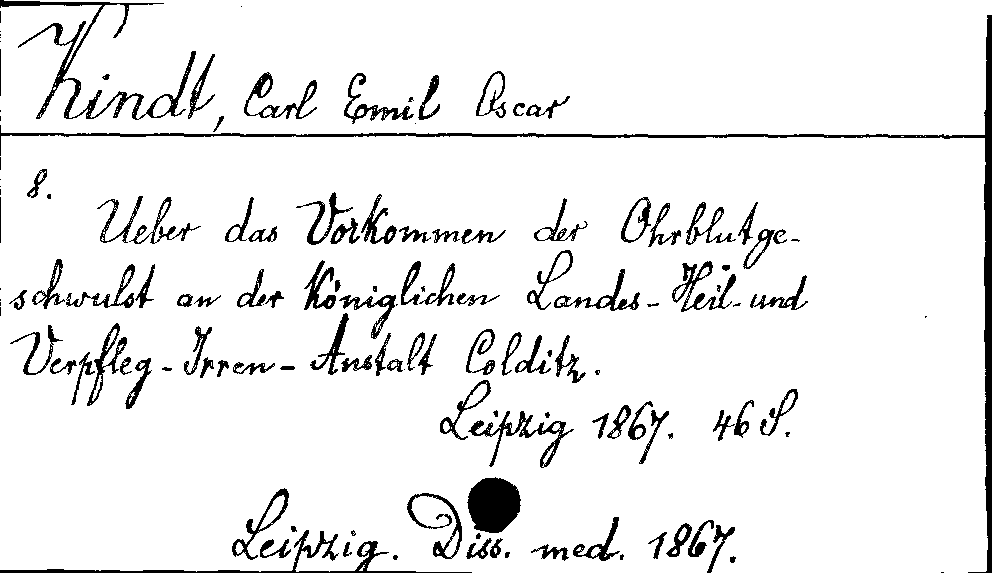 Kindt, Carl Emil Oscar
8.
Ueber das Vorkommen der Ohrblutge-
schwulst an der Königlichen Landes-Heil-und
Verpfleg-Irren-Anstalt Colditz.
Leipzig 1867. 46 S.
Leipzig. Diss. med. 1867.